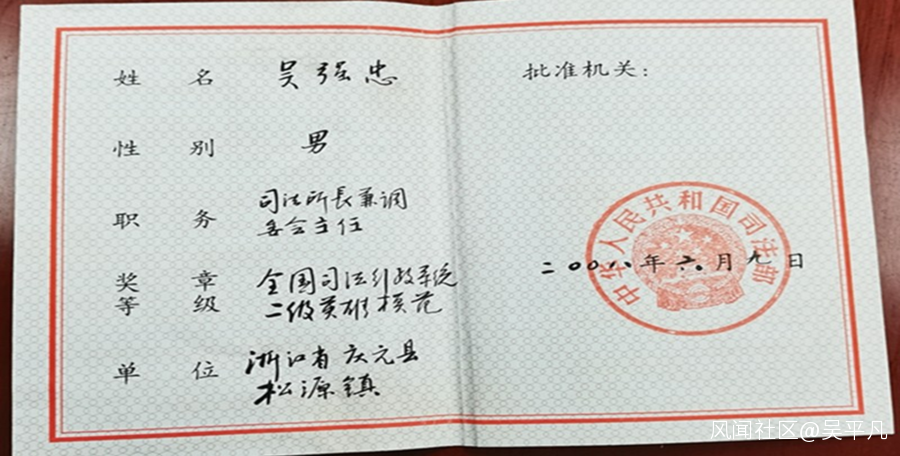 姓名 吴强忠
性别 男
职务 司法所長兼调
委会主任
奖章
等级 全国司法行政系统
二级英雄模范
单位 浙江省庆元县
松源镇
批准机关：
中华人民共和国司法部
二〇〇八年六月九日
风闻社区@吴平凡